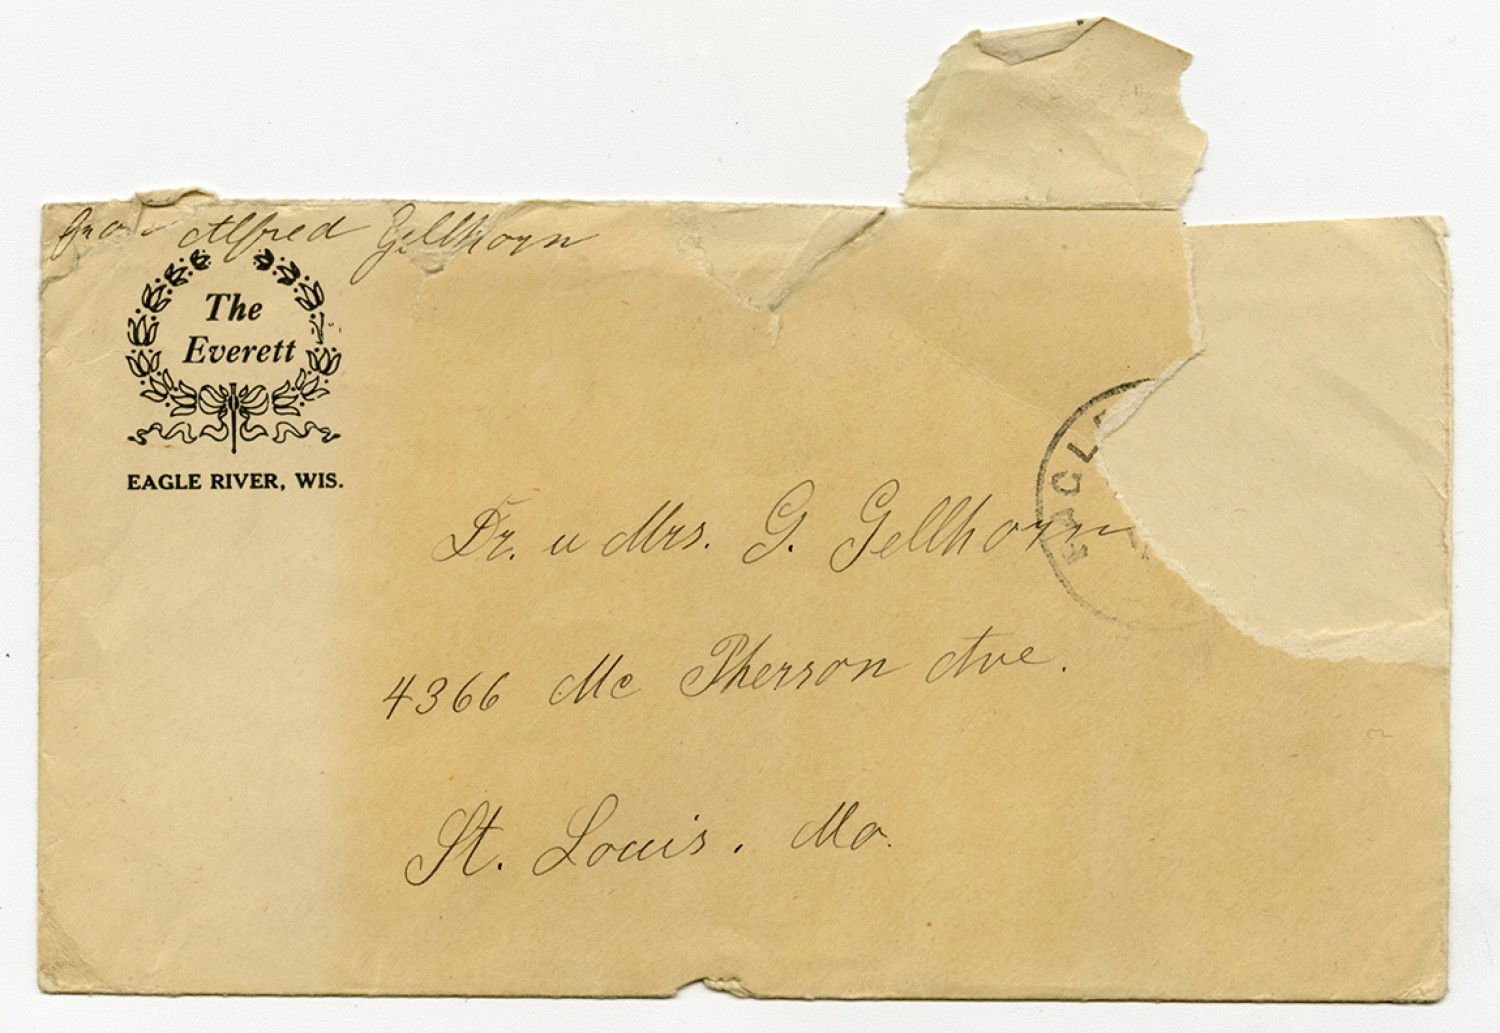 Alfred Gellhorn
The
Everett
EAGLE RIVER, WIS.
EAGLE
Dr. u Mrs. G. Gellhorn
4366 Mc Pherson Ave.
St. Louis, Mo.